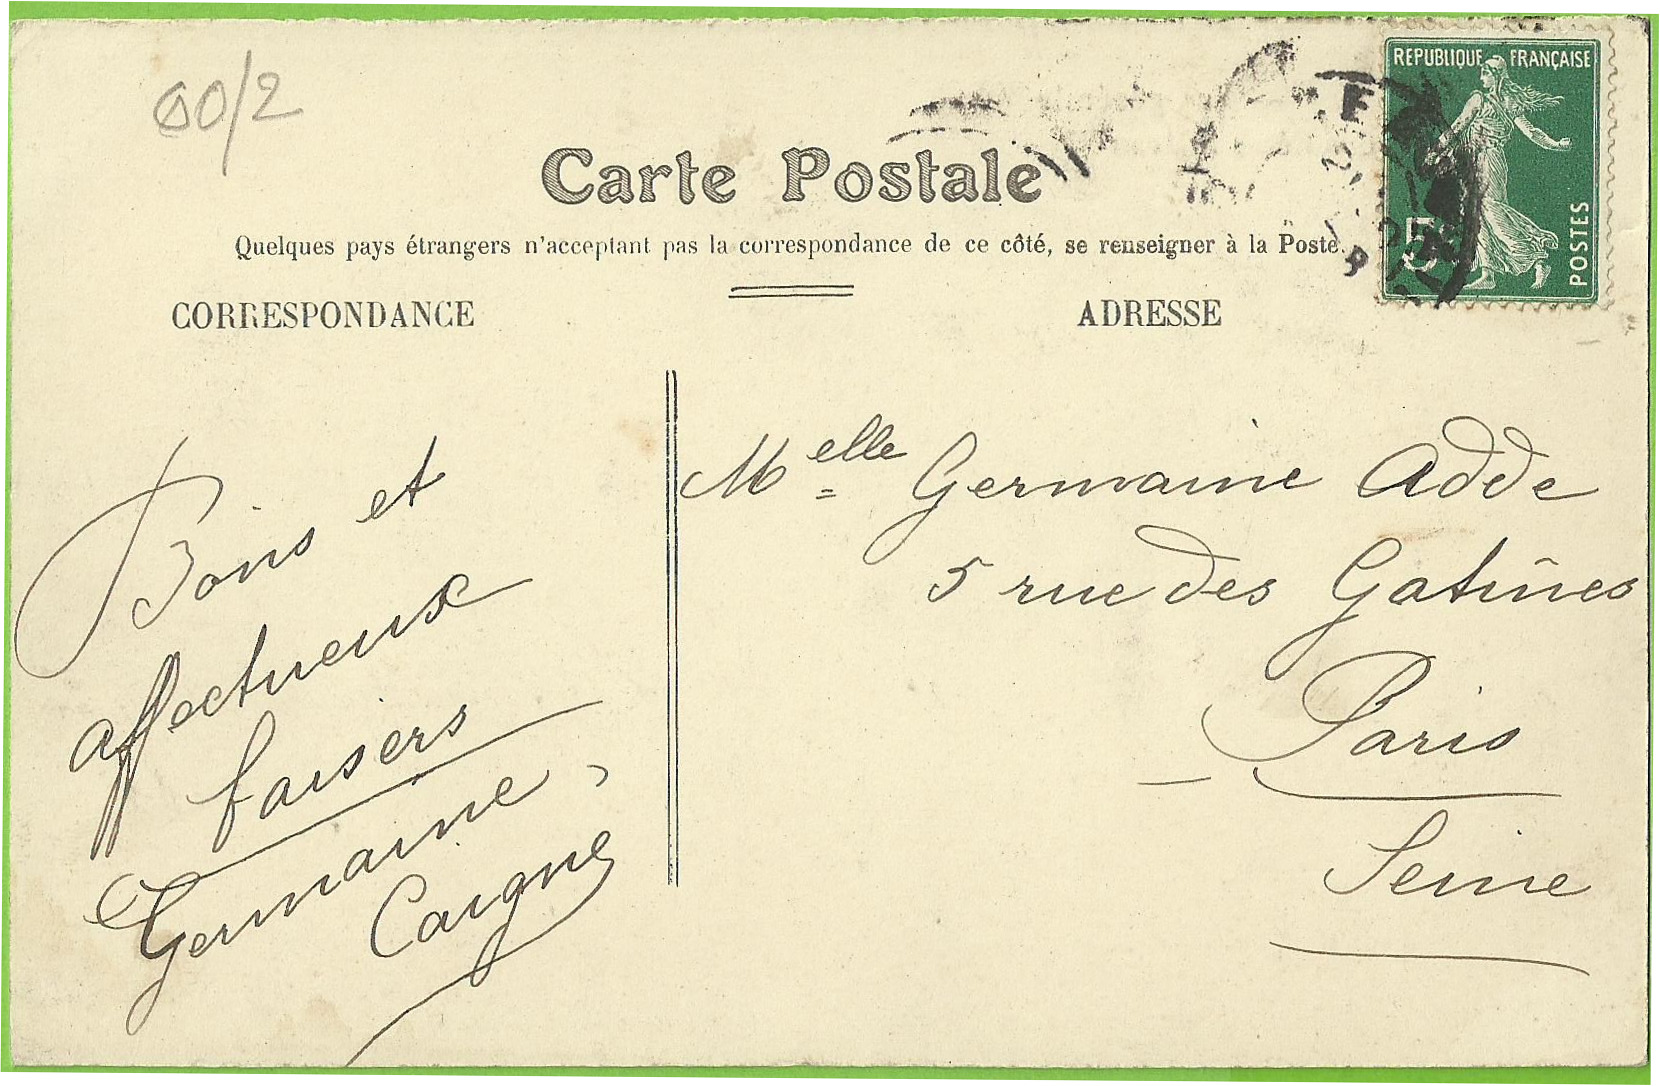 00/2
Carte Postale
Quelques pays étrangers n'acceptant pas la correspondance de ce côté, se renseigner à la Poste.
CORRESPONDANCE
ADRESSE
REPUBLIQUE FRANÇAISE
5c
POSTES
Bons et
affectueux
baisers
Germaine
Caigne
Melle Germaine Adde
5 rue des Gatines
Paris
Seine